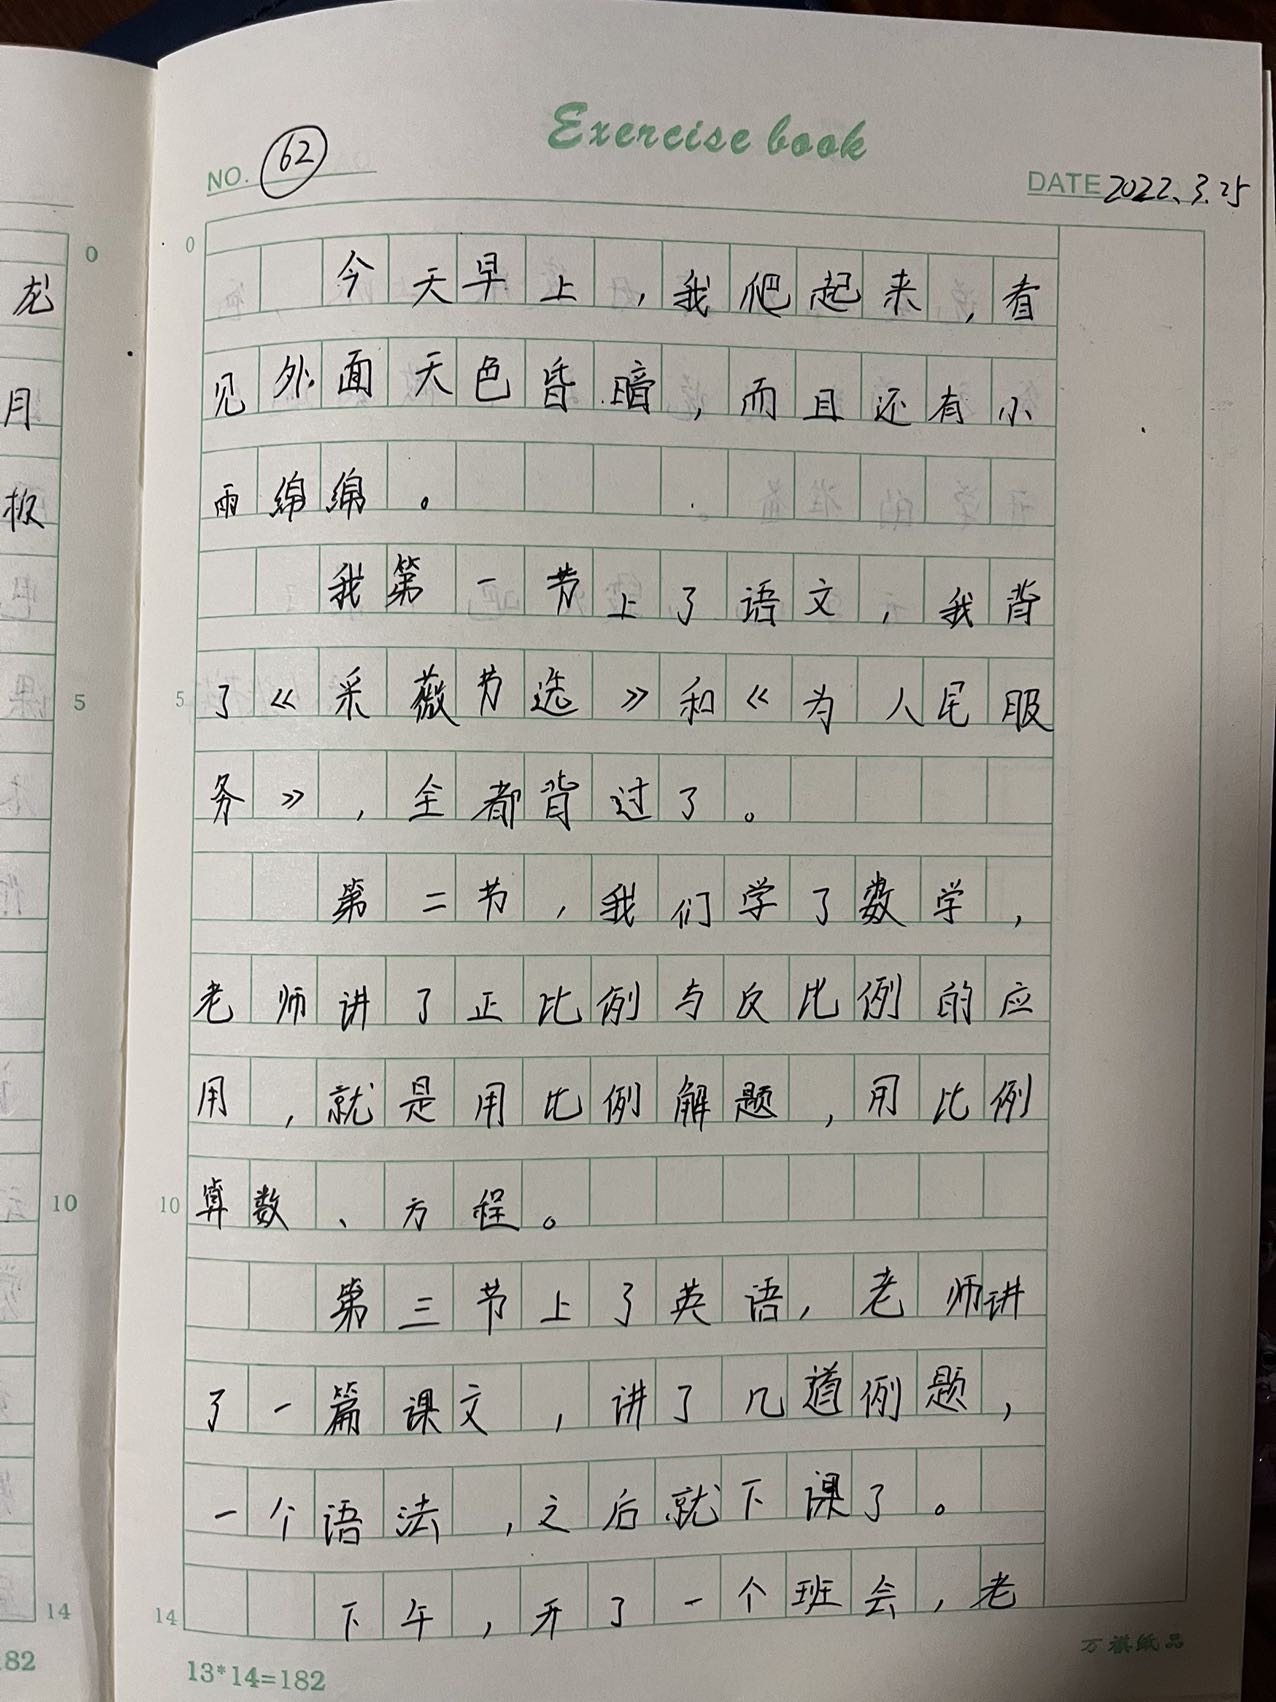 Exercise book
NO. 62
DATE 2022.3.25
0
今天早上，我爬起来，看
见外面天色昏暗，而且还有小
雨绵绵。
我第一节上了语文，我背
5 了《采薇节选》和《为人民服
务》，全都背过了。
第二节，我们学了数学，
老师讲了正比例与反比例的应
用，就是用比例解题，用比例
10 算数、方程。
第三节上了英语，老师讲
了一篇课文，讲了几道例题，
一个语法，之后就下课了。
14 下午，开了一个班会，老
13*14=182
万祺纸品
0
龙
月
板
5
10
14
82